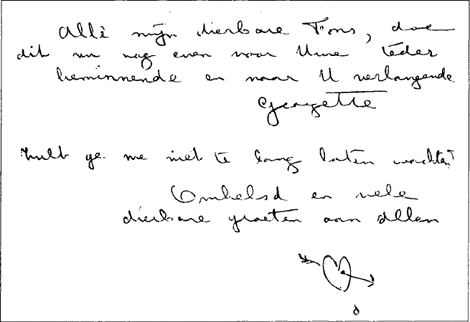 Allè mijn dierbare Fons, doe
dit nu nog even voor Uwe teder
beminnende en naar U verlangende
Georgette
Zult ge me niet te lang laten wachten?
Omhelsd en vele
dierbare groeten aan allen